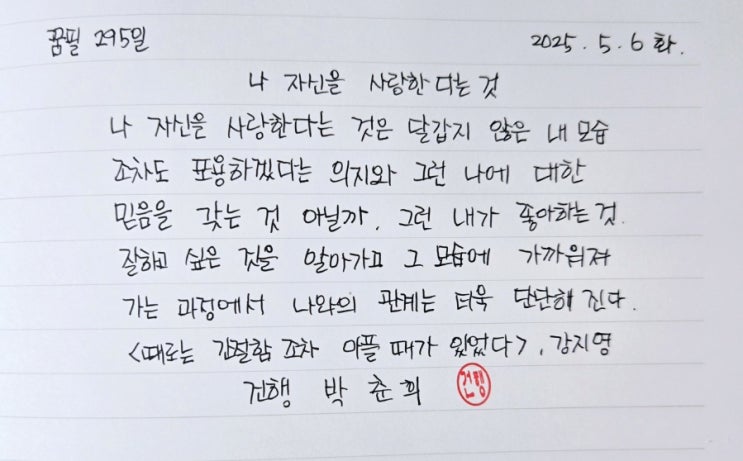 꿈필 295일 2025. 5. 6 화.
나 자신을 사랑한다는 것
나 자신을 사랑한다는 것은 달갑지 않은 내 모습
조차도 포용하겠다는 의지와 그런 나에 대한
믿음을 갖는 것 아닐까. 그런 내가 좋아하는 것.
잘하고 싶은 것을 알아가고 그 모습에 가까워져
가는 과정에서 나와의 관계는 더욱 단단해 진다.
<때로는 간절함 조차 아플 때가 있었다>, 강지영
건행 박춘희 건행